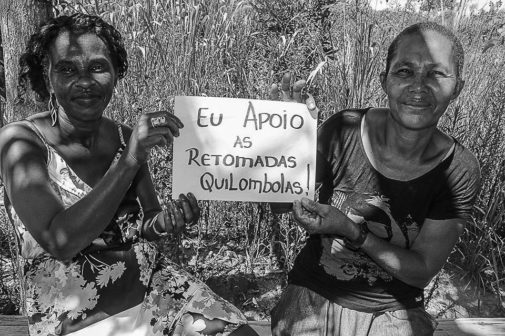 Eu Apoio
as
Retomadas
Quilombolas!